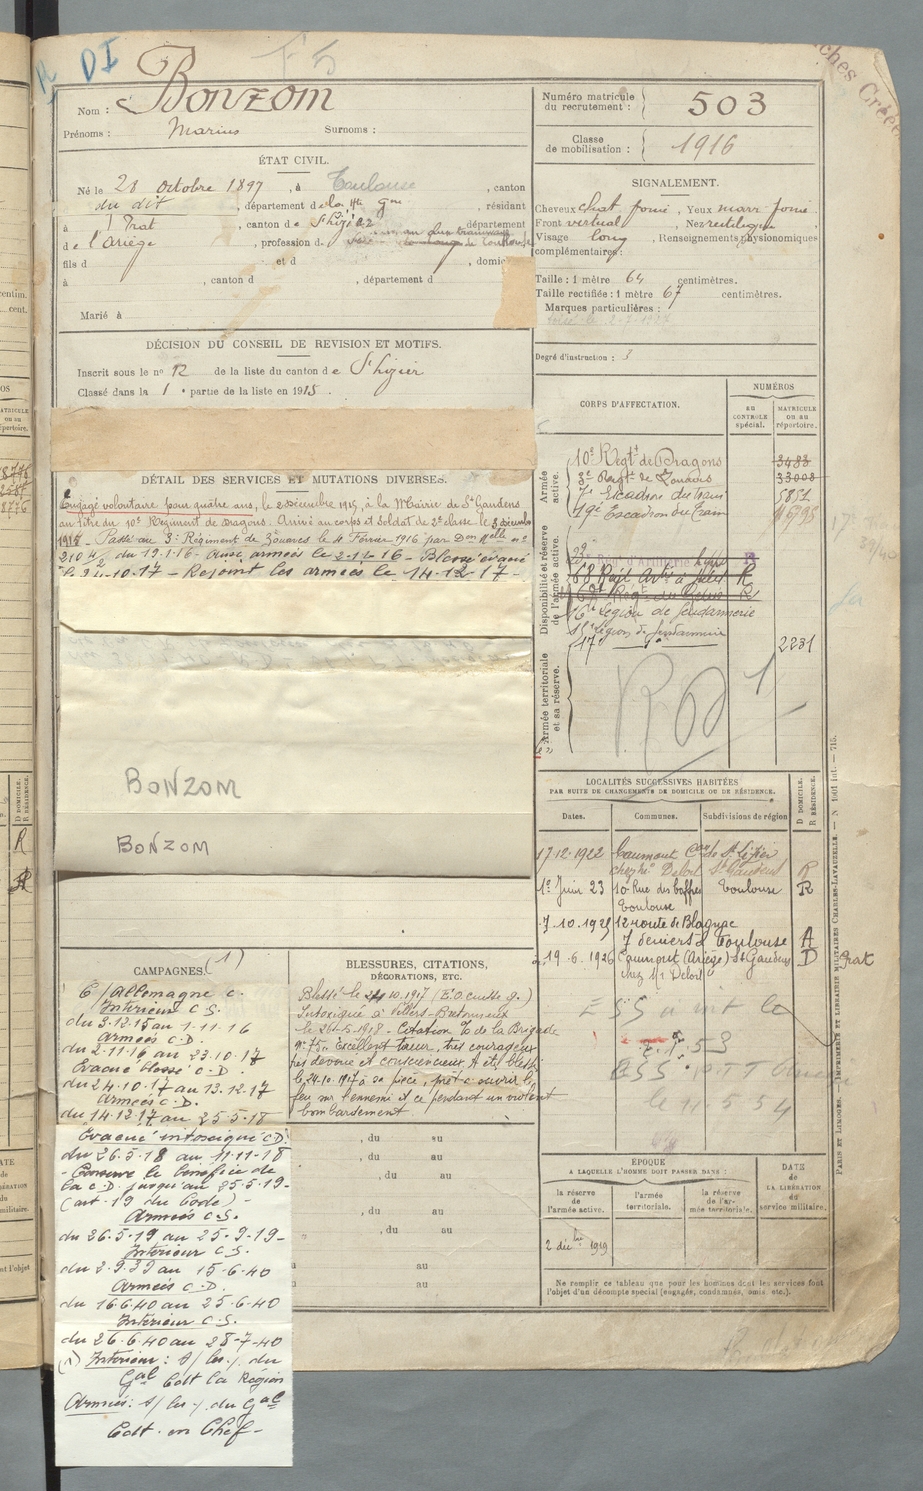 R DI
F5
Nom : Bonzom
Prénoms : Marius Surnoms :
ÉTAT CIVIL.
Né le 28 octobre 1897, à Toulouse, canton
du dit, département de la Hte Gne, résidant
à Prat, canton de St Lizier, département
de l'ariège, profession de
fils d et d , domicilié
à , canton d , département d
Marié à
DÉCISION DU CONSEIL DE REVISION ET MOTIFS.
Inscrit sous le no 12 de la liste du canton de St Lizier
Classé dans la 1e partie de la liste en 1915
DÉTAIL DES SERVICES ET MUTATIONS DIVERSES.
Engagé volontaire pour quatre ans, le 2 Décembre 1915, à la Mairie de St Gaudens
au titre du 10e Régiment de Dragons. Arrivé au corps et soldat de 2e classe le 3 décembre
1915 - Passé au 3e Régiment de Zouaves le 4 Février 1916 par Don Melle no
2104/2 du 19.1.16 - Aux armées le 2-11-16 - Blessé évacué
le 24-10-17 - Rejoint les armées le 14-12-17 -
BONZOM
BONZOM
CAMPAGNES. (1)
C/Allemagne C.
Intérieur C.S.
du 3.12.15 au 1-11-16
Armées C.D.
du 2-11-16 au 23.10-17
Evacué blessé C.D.
du 24.10.17 au 13.12.17
Armées C.D.
du 14-12.17 au 25-5-18
Evacué intoxiqué C.D.
du 26-5-18 au 11-11-18
- Conserve le bénéfice de
la C.D. jusqu'au 25-5-19-
(art. 19 du Code) -
Armées C.S.
du 26-5-19 au 25-9-19-
Intérieur C.S.
du 2-9.39 au 15-6-40
Armées C.D.
du 16.6.40 au 25-6-40
Intérieur C.S.
du 26.6.40 au 28-7-40
(1) Intérieur : du
Gal Cdt la Région
Armées : du Gal
Cdt. en Chef -
BLESSURES, CITATIONS,
DÉCORATIONS, ETC.
Blessé le 24 10.1917 (E.O. cuisse g.)
Intoxiqué à Villers-Bretonneux
le 26-5-1918 - Citation O/ de la Brigade
no 75. Excellent tireur, très courageux
très dévoué et consciencieux. A été blessé
le 24.10.1917 à sa pièce, prêt à ouvrir le
feu sur l'ennemi et ce pendant un violent
bombardement.
, du au
, du au
, du au
, du au
, du au
au
au
Numéro matricule
du recrutement : 503
Classe
de mobilisation : 1916
SIGNALEMENT.
Cheveux chat. foncé, Yeux marr. foncé
Front vertical, Nez rectiligne
Visage long, Renseignements physionomiques
complémentaires :
Taille : 1 mètre 64 centimètres.
Taille rectifiée : 1 mètre 67 centimètres.
Marques particulières :
Degré d'instruction : 3
CORPS D'AFFECTATION.
NUMÉROS
au
CONTROLE
spécial.
MATRICULE
ou au
répertoire.
Armée
active.
10e Régt de Dragons 3488
3e Régt de Zouaves 33008
7e Escadron du train 5851
19e Escadron du Train 16795
Disponibilité et réserve
de l'armée active.
16e Légion de Gendarmerie
17e 2231
Armée territoriale
et sa réserve.
LOCALITÉS SUCCESSIVES HABITÉES
PAR SUITE DE CHANGEMENTS DE DOMICILE OU DE RÉSIDENCE.
Dates. Communes. Subdivisions de région
D DOMICILE.
R RÉSIDENCE.
17.12.1922 Caumont Con de St Lizier
chez Mr Delort St Gaudens R
1er Juin 23 10 Rue des Coffres Toulouse R
Toulouse
7.10.1925 12 route de Blagnac
7 deniers à Toulouse A
19.6.1926 Caumont (Ariège) St Gaudens D Prat
chez Mr Delort
ÉPOQUE
A LAQUELLE L'HOMME DOIT PASSER DANS :
la réserve
de l'armée active.
l'armée
territoriale.
la réserve
de l'ar-
mée territoriale.
DATE
de
LA LIBÉRATION
du
service militaire.
2 décbre 1919
Ne remplir ce tableau que pour les hommes dont les services font
l'objet d'un décompte spécial (engagés, condamnés, omis, etc.).
PARIS ET LIMOGES. — IMPRIMERIE ET LIBRAIRIE MILITAIRES CHARLES-LAVAUZELLE. — N 1001 int. — 715.